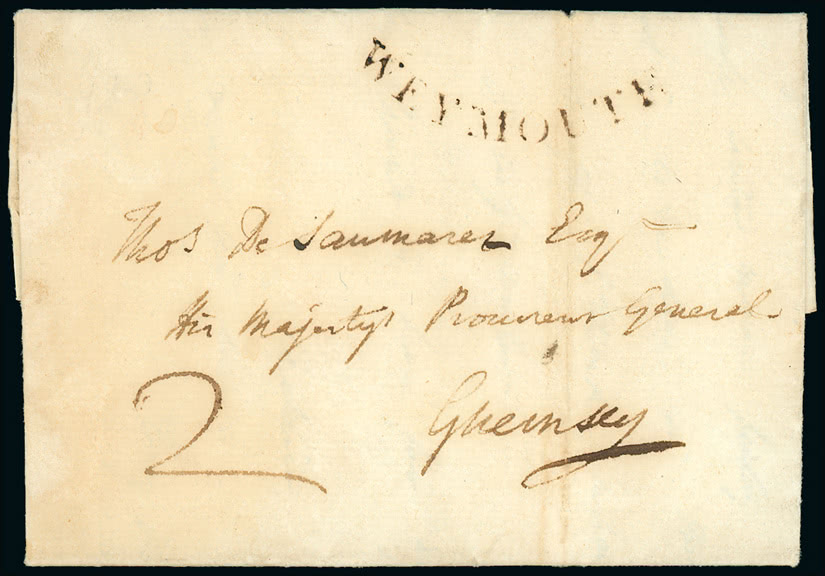 WEYMOUTH
Thos De Saumarez Esqr
His Majestys Procureur General
2
Guernsey